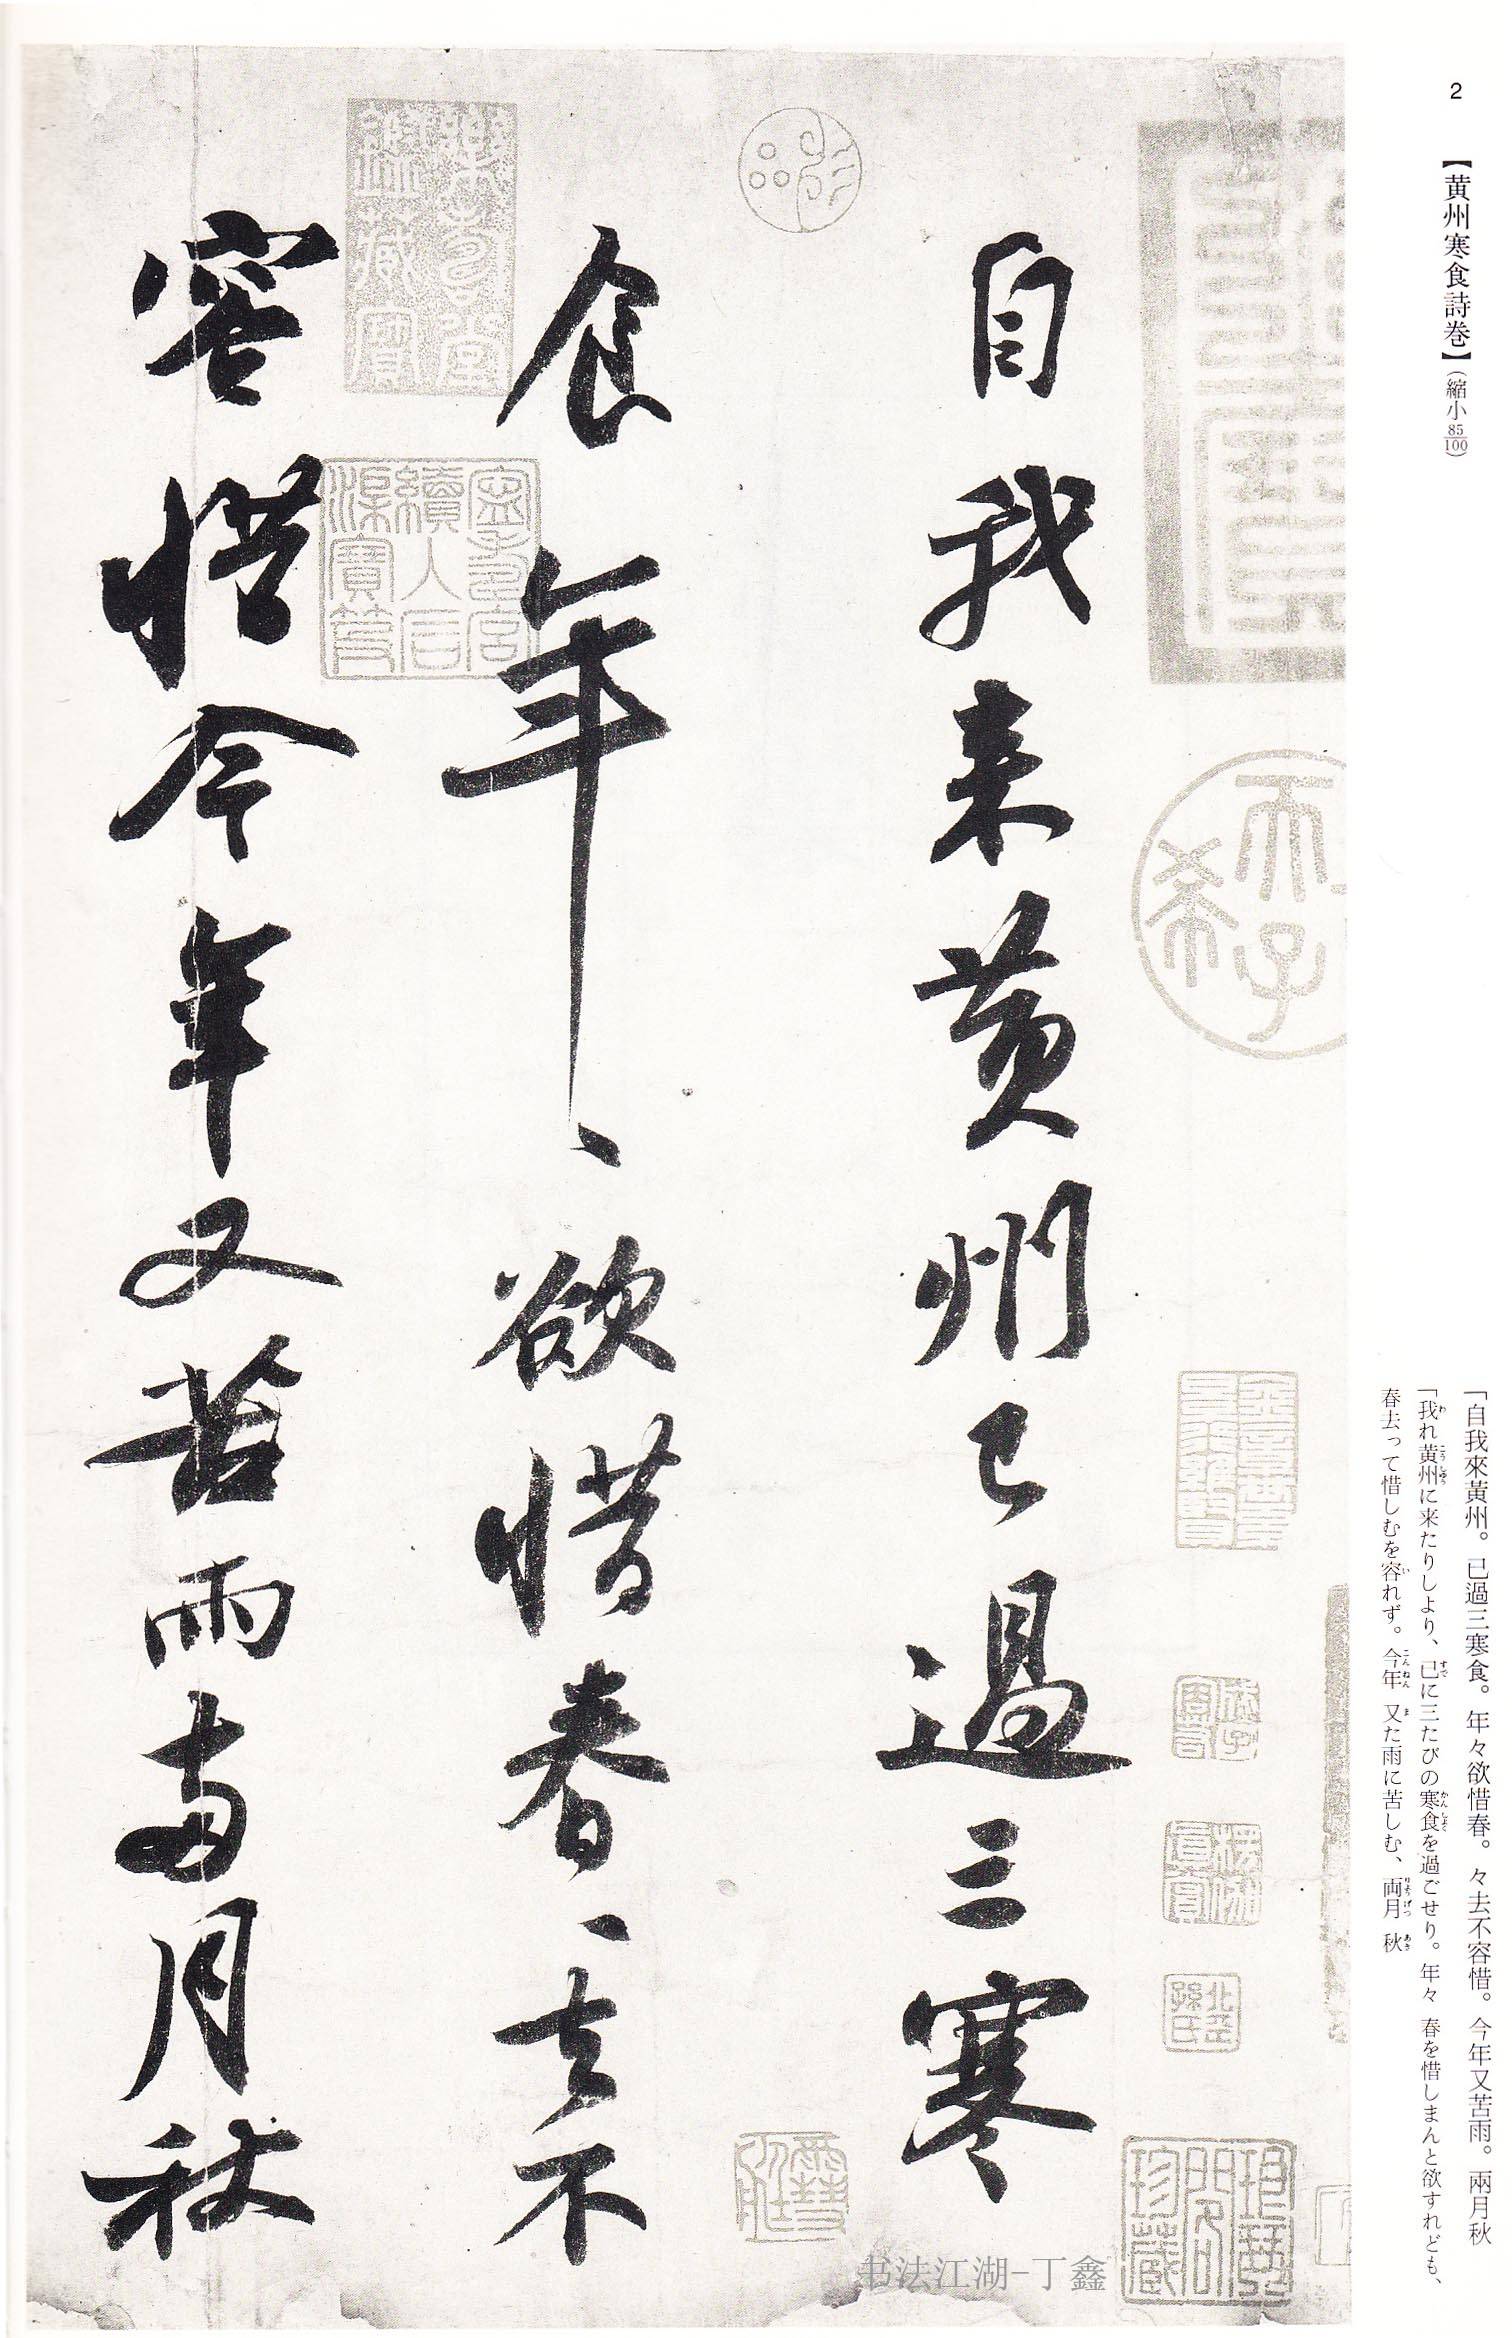 2
【黄州寒食詩巻】(縮小85/100)
「自我來黃州。已過三寒食。年々欲惜春。々去不容惜。今年又苦雨。兩月秋
「我れ黄州に来たりしより、已に三たびの寒食を過ごせり。年々 春を惜しまんと欲すれども、
春去って惜しむを容れず。今年 又た雨に苦しむ、両月 秋
天子
希
自我来黄州已過三寒
食年〻欲惜春〻去不
容惜今年又苦雨兩月秋
书法江湖-丁鑫